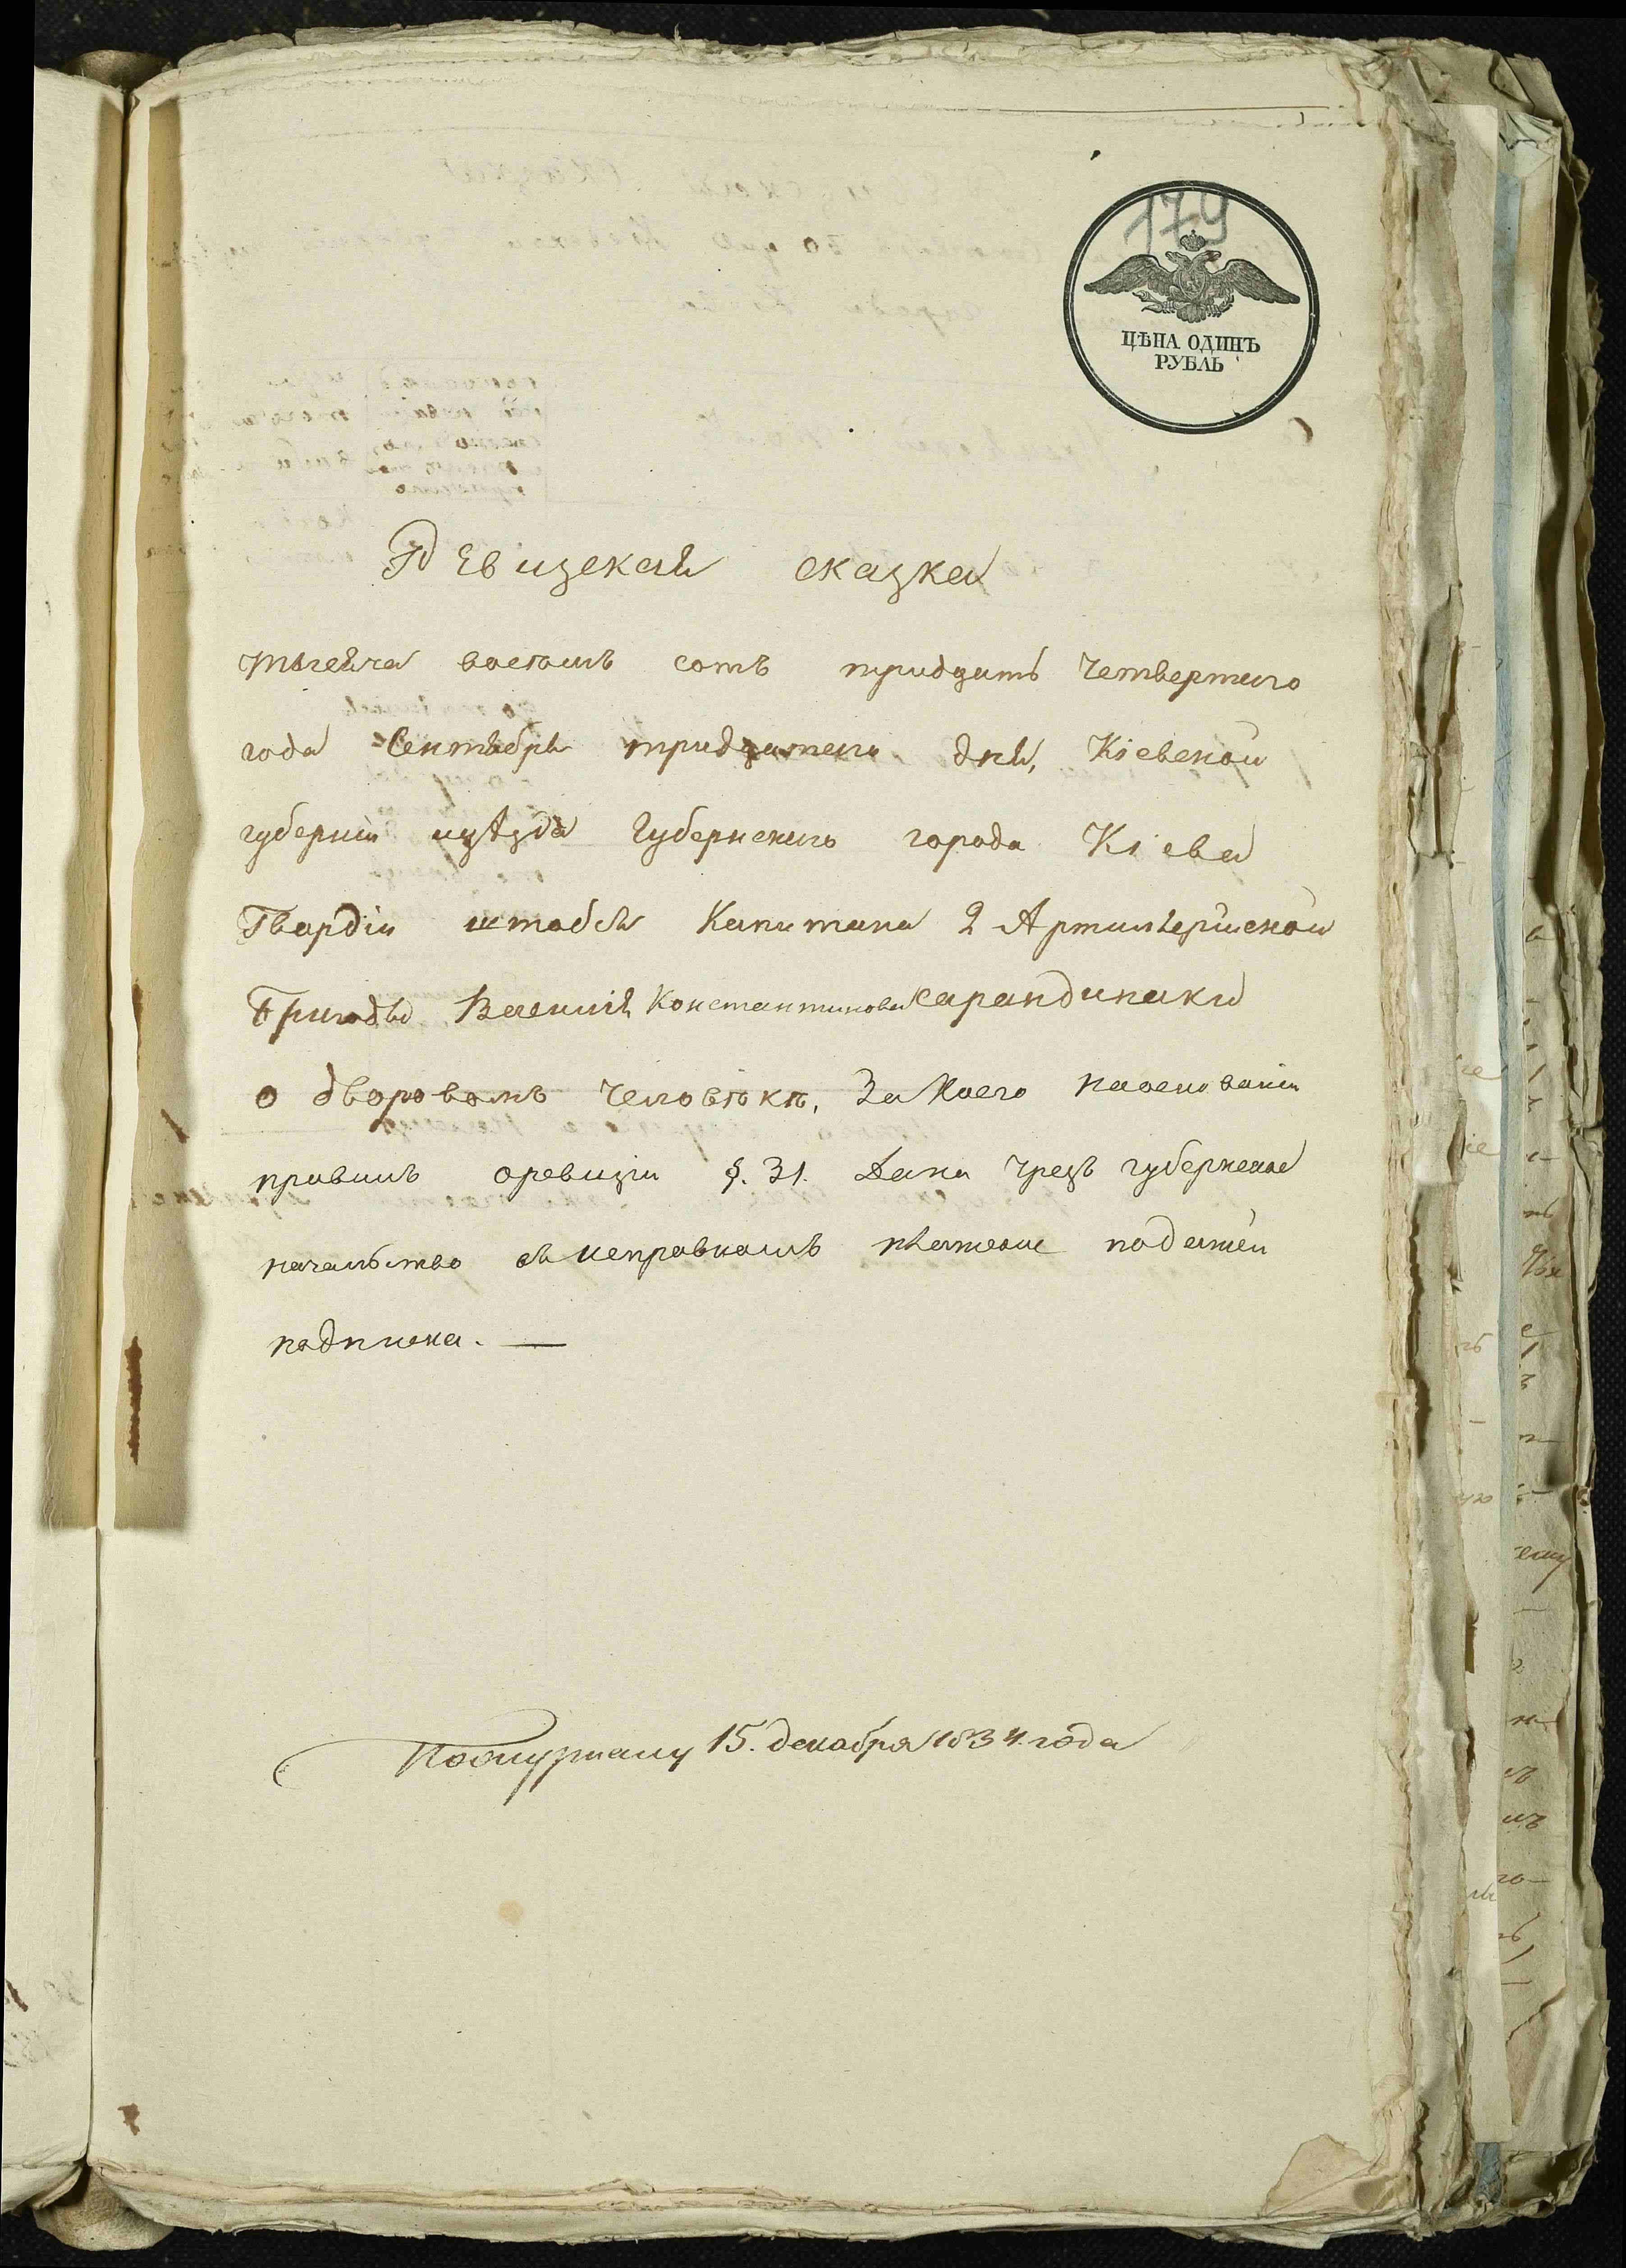 179
ЦѢНА ОДИНЪ
РУБЛЬ
Ревизская сказка
тысяча восемь сотъ тридцать четвертаго
года Сентября тридцатаго дня, Кіевской
губерніи уѣзда Губернскаго города Кіева
Гвардіи штабсъ Капитана 2 Артилерійской
Бригады Василія Константинова Сарандинаки
о дворовомъ человѣкѣ, За Коего наосновании
правилъ оревизіи §. 31. Дана Чрезъ губернское
начальство въ исправномъ платеже податей
подписка. —
15. декабря 1834. года